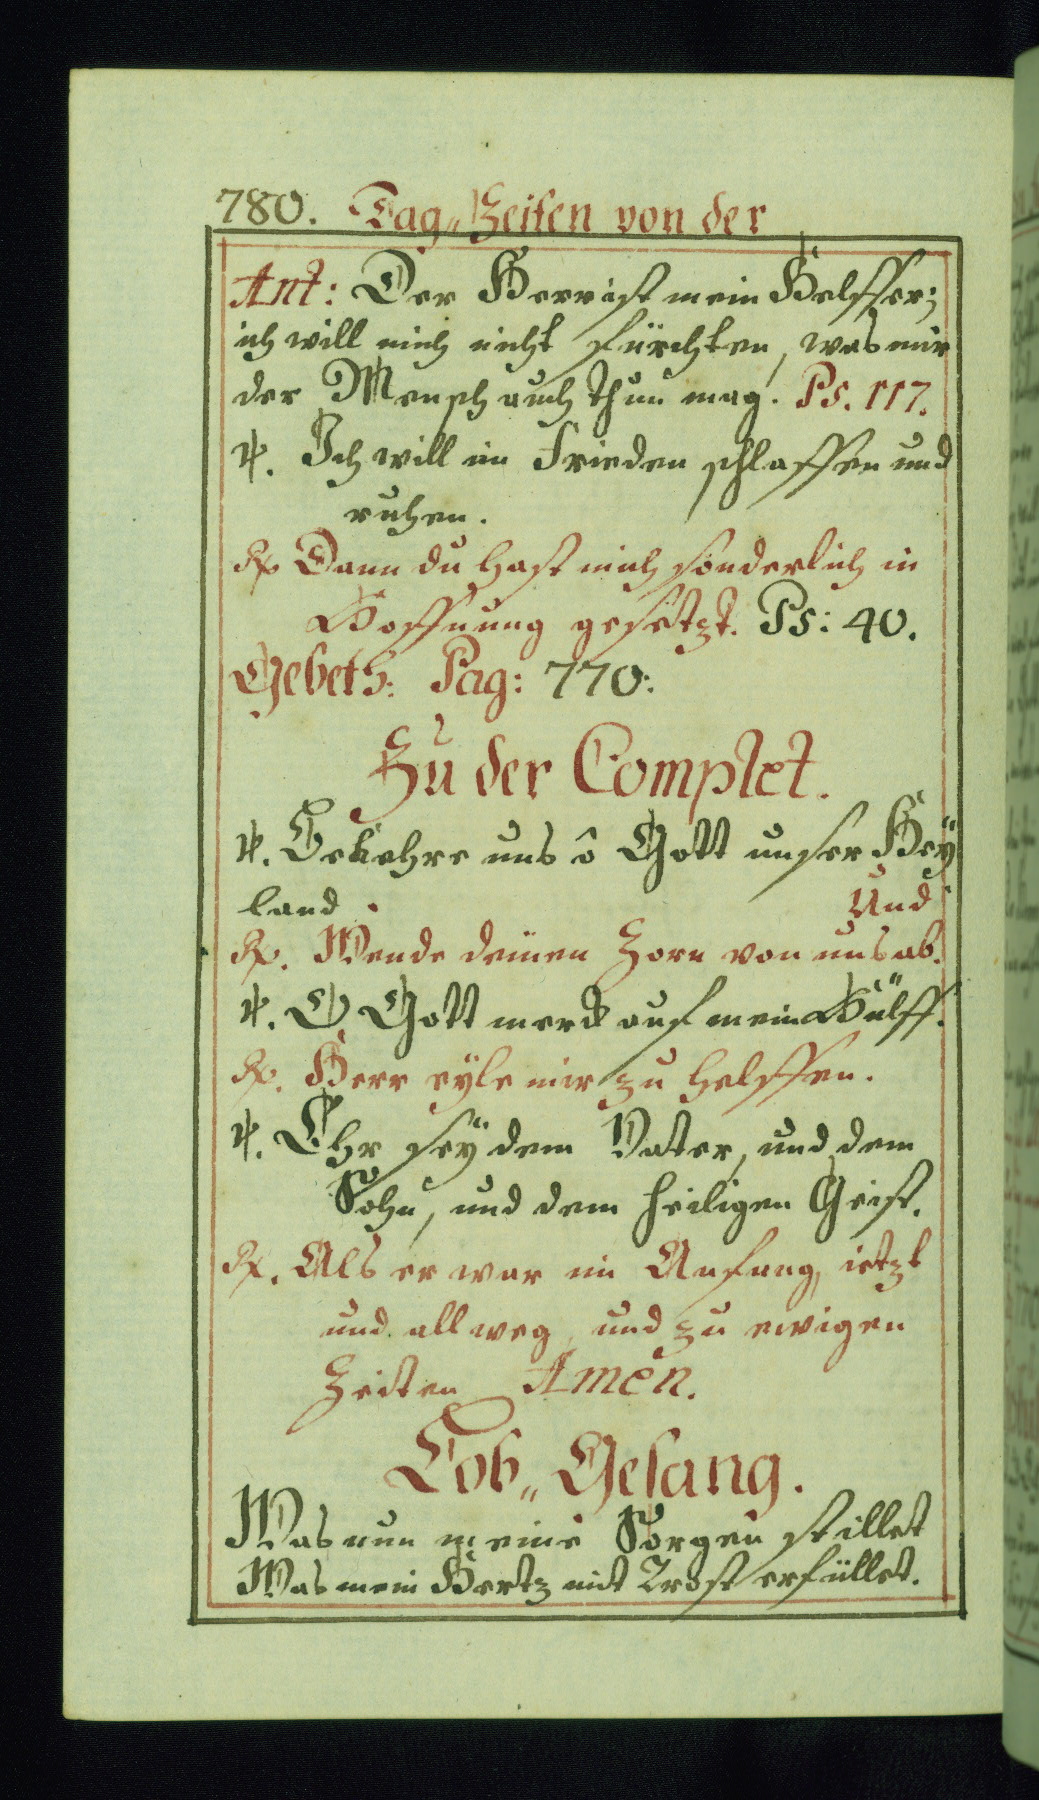 780. Tag„ Zeiten von der
Ant: Der Herr ist mein Helffer;
ich will mich nicht fürchten, was mir
der Mensch auch thun mag. Ps. 117.
℣. Ich will im Frieden schlaffen und
ruhen.
℟ Dann du hast mich sonderlich in
Hoffnung gesetzt. Ps: 40.
Gebeth: Pag: 770:
Zu der Complet.
℣. Bekehre uns ô Gott unser Heÿ
land. Und
℟. Wende deinen Zorn von uns ab.
℣. O Gott merck auf mein Hülff.
℟. Herr eÿle mir zu helffen.
℣. Ehr seÿ dem Vater, und dem
Sohn, und dem heiligen Geist.
℟. Als er war im Anfang, ietzt
und allweg, und zu ewigen
Zeiten Amen.
Lob„ Gesang.
Was nun meine Sorgen stillet
Was mein Hertz mit Trost erfüllet.